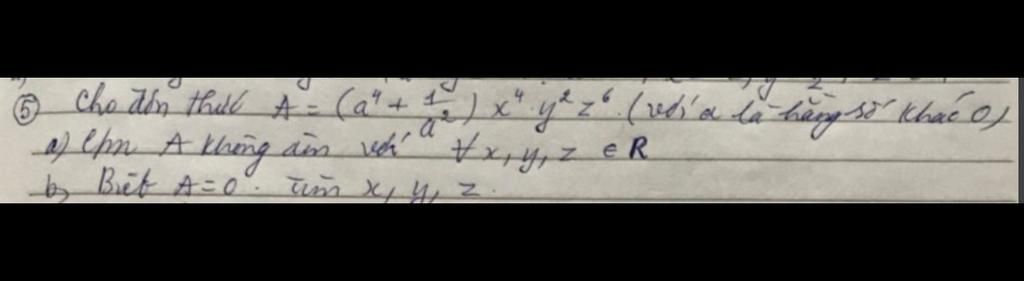 ⑤ Cho đơn thức A = (a⁴ + 1/a²) x⁴.y²z⁶. (với a là hằng số khác 0)
a) C/m A không âm với ∀x, y, z ∈ R
b) Biết A = 0. Tìm x, y, z.